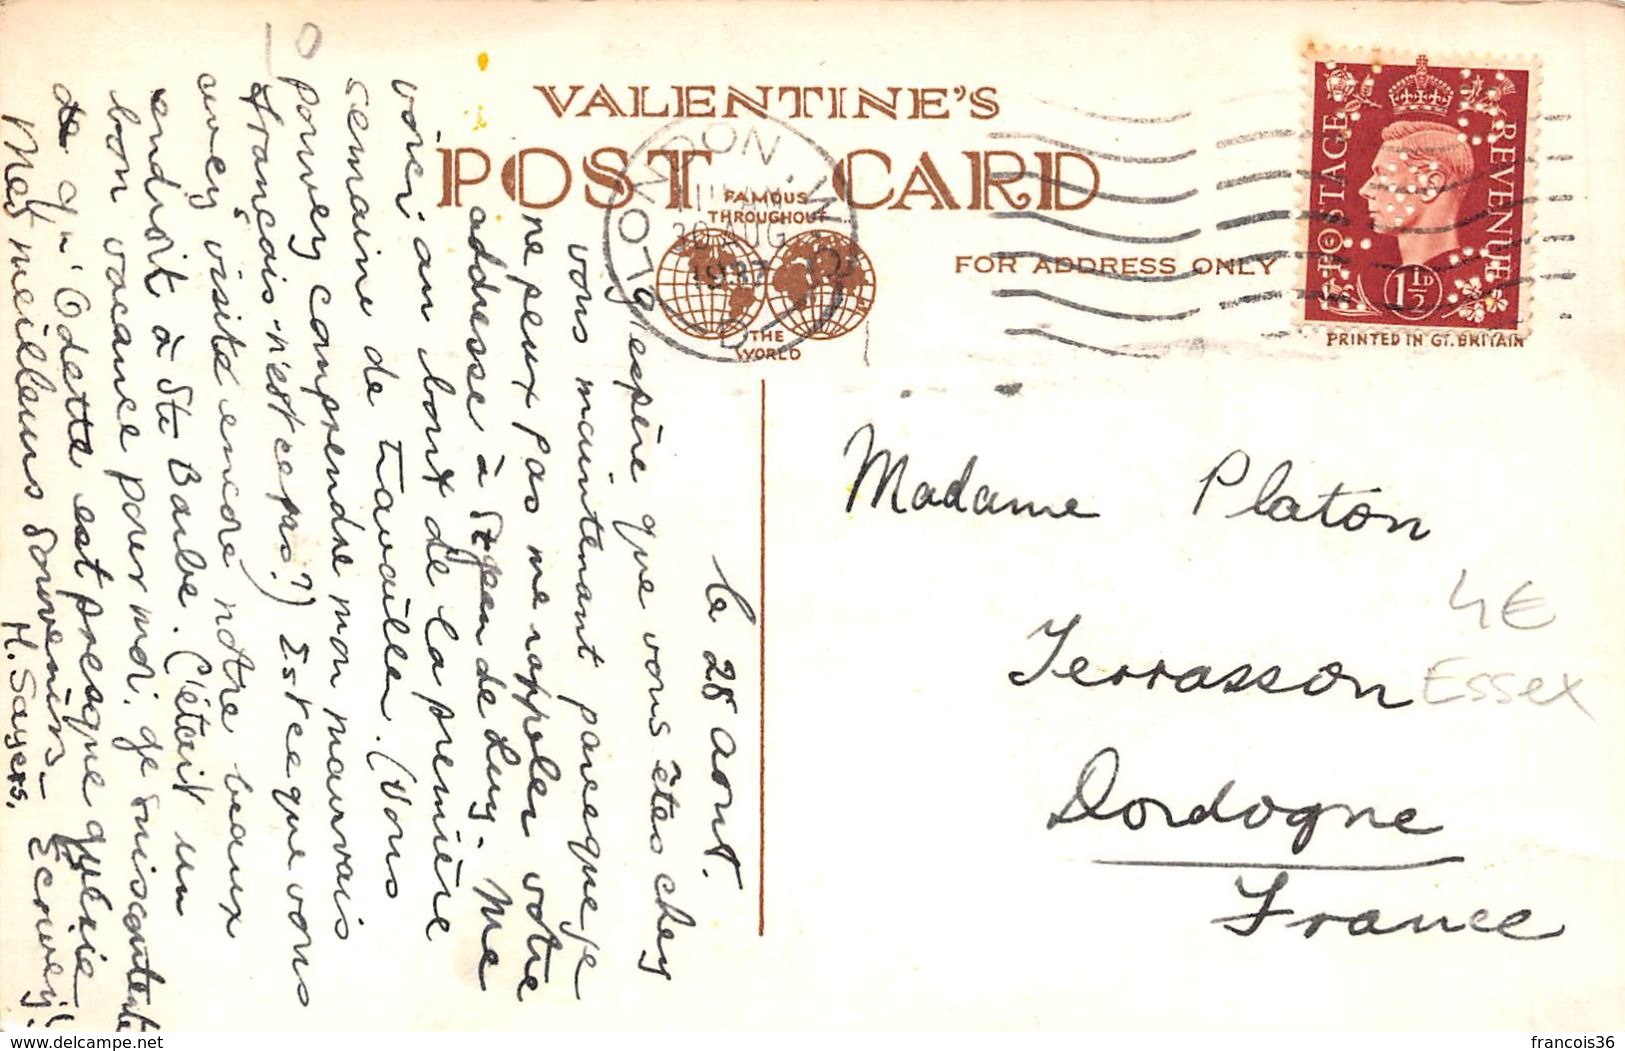 VALENTINE'S
POST CARD
FAMOUS
THROUGHOUT
THE
WORLD
FOR ADDRESS ONLY
LONDON. W.
AM
30 AUG
1937
POSTAGE
REVENUE
1½D
PRINTED IN GT. BRITAIN
le 28 aout.
J'espère que vous êtes chez
vous maintenant parceque je
ne peux pas me rappeler votre
addresse à St Jean de Luz. Me
voici au bout de la première
semaine de travailler. (Vous
pouvez comprendre mon mauvais
français - n'est ce pas?) Est ce que vous
avez visité encore notre beaux
endroit à Ste Barbe. C'était un
bon vacance pour moi. Je suis contente
de qu' Odette est presque guérie
Mes meilleurs souvenirs - Ecrivez!
H. Sayers.
Madame Platon
Terrasson
Dordogne
France
4€
Essex
10
delcampe.net
francois36